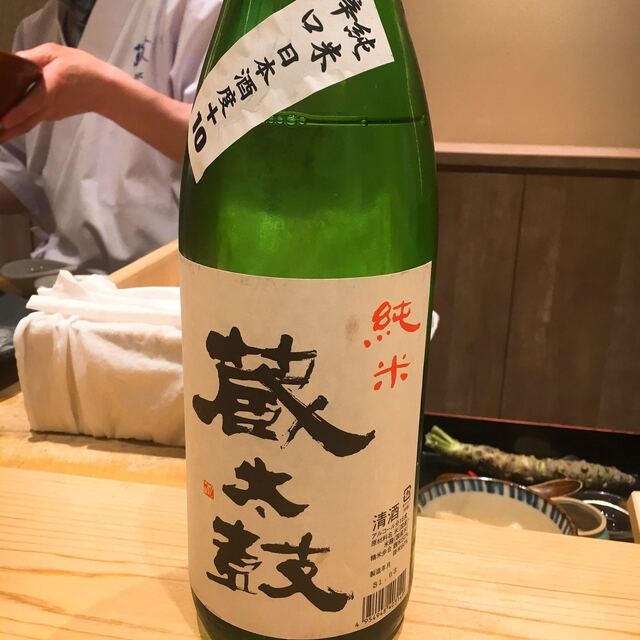 純米
辛口
日本酒度+10
純米
蔵太鼓
清酒
製造年月
31.03